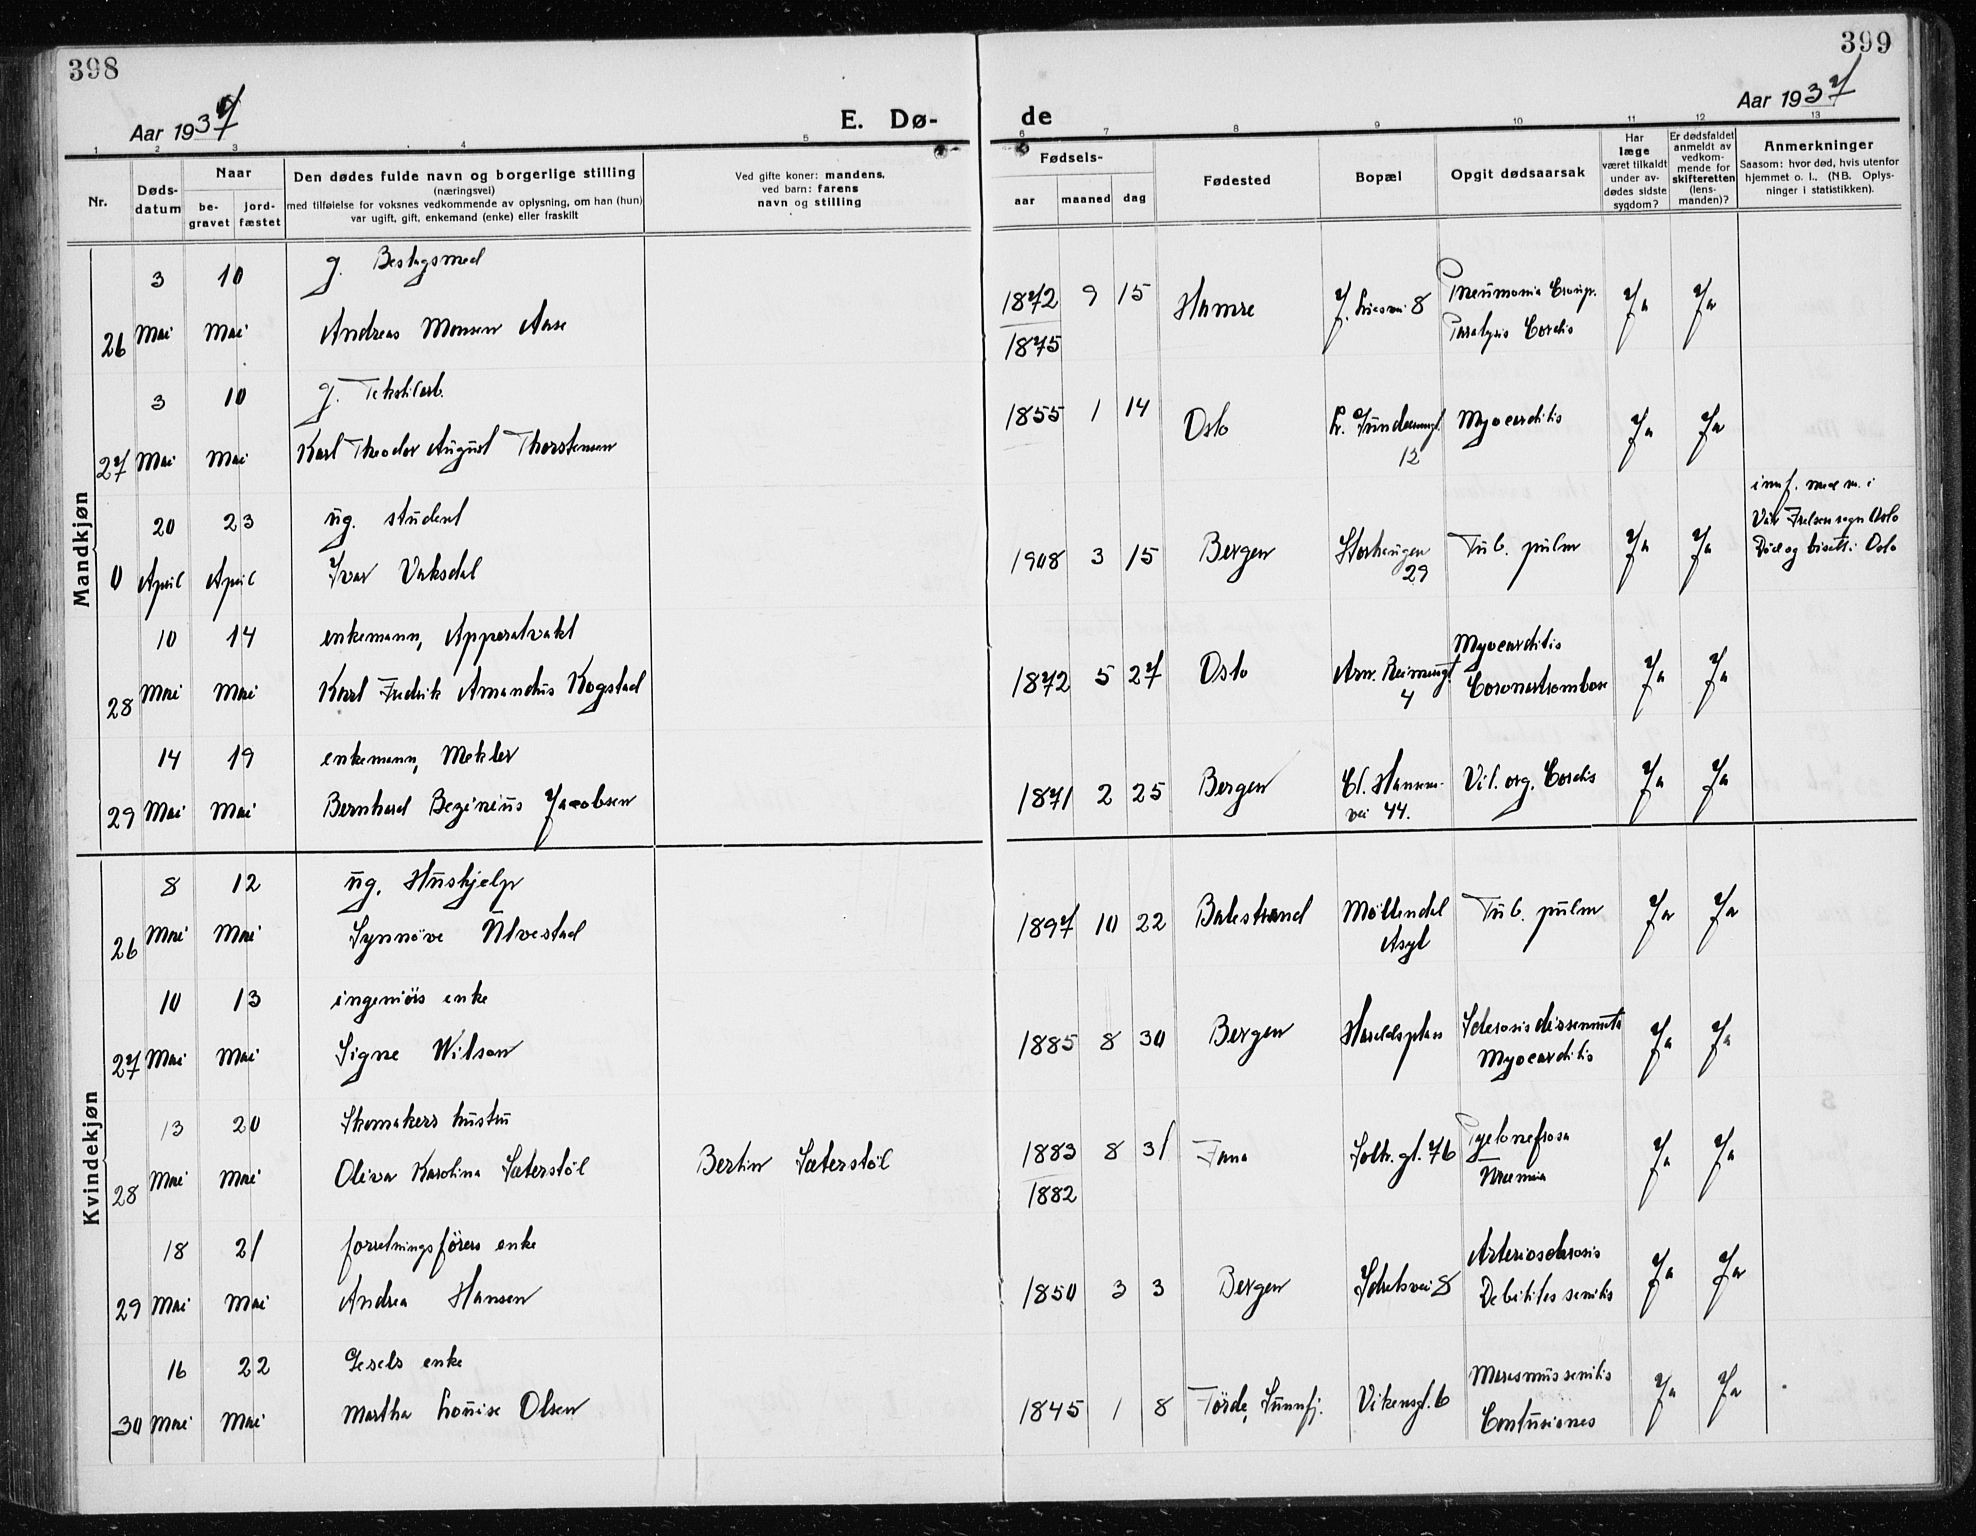 398
399
Aar 1937
E. Dø-
de
Aar 1937
1 2 3 4 5 6 7 8 9 10 11 12 13
Nr.
Døds-
datum
Naar
be-
gravet
jord-
fæstet
Den dødes fulde navn og borgerlige stilling
(næringsvei)
med tilføielse for voksnes vedkommende av oplysning, om han (hun)
var ugift, gift, enkemand (enke) eller fraskilt
Ved gifte koner: mandens,
ved barn: farens
navn og stilling
Fødsels-
aar maaned dag
Fødested
Bopæl
Opgit dødsaarsak
Har
læge
været tilkaldt
under av-
dødes sidste
sygdom?
Er dødsfaldet
anmeldt av
vedkom-
mende for
skifteretten
(lens-
manden)?
Anmerkninger
Saasom: hvor død, hvis utenfor
hjemmet o. l., (NB. Oplys-
ninger i statistikken).
Mandkjøn
3 10 g. Beslagsmed
26 Mai Mai Andreas Monsen Aase
1872 9 15 Hamre 8 Pneumonia Croup. Ja Ja
1875 Paralysis Cordis
3 10 g. Tekstilarb.
27 Mai Mai Karl Theodor August Thorstensen
1855 1 14 Oslo 12 Myocarditis Ja Ja
20 23 ug. student
0 April April Ivar Vaksdal
1908 3 15 Bergen Storhaugen 29 Tub. pulm Ja Ja
innf. i
Vår Frelsers sogn Oslo
Død og bisatt i Oslo
10 14 enkemann, Apparatvakt
28 Mai Mai Karl Fredrik Amandus Kogstad
1872 5 27 Oslo Arn. Reimersgt. 4 Myocarditis Ja Ja
Coronartrombose
14 19 enkemann, Mekler
29 Mai Mai Bernhard Bezinius Jacobsen
1871 2 25 Bergen Cl. Hansens- vei 44. Vit. org. Cordis Ja Ja
Kvindekjøn
8 12 ug. Hushjelp
26 Mai Mai Synnøve Ulvestad
1897 10 22 Balestrand Møllendal Asyl Tub. pulm Ja Ja
10 13 ingeniørs enke
27 Mai Mai Signe Wilson
1885 8 30 Bergen Haraldsplass Sclerosis disseminata Ja Ja
Myocarditis
13 20 Skomakers hustru
28 Mai Mai Oliva Karolina Sæterstøl Bertin Sæterstøl
1883 8 31 Fana Solh. gt. 76 Pyelonefrosa Ja Ja
1882 Uraemia
18 21 forretningsførers enke
29 Mai Mai Andrea Hansen
1850 3 3 Bergen Idretsvei 8 Arteriosclerosis Ja Ja
Debilitas senilis
16 22 Gesels enke
30 Mai Mai Martha Louise Olsen
1845 1 8 Førde, Sunnfj. Vikensgt. 6 Marasmus senilis Ja Ja
Contusiones